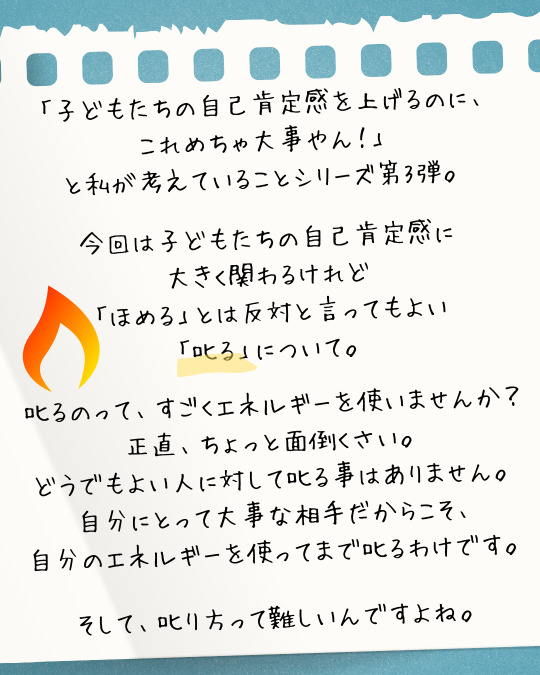 「子どもたちの自己肯定感を上げるのに、
これめちゃ大事やん！」
と私が考えていることシリーズ第3弾。
今回は子どもたちの自己肯定感に
大きく関わるけれど
「ほめる」とは反対と言ってもよい
「叱る」について。
叱るのって、すごくエネルギーを使いませんか？
正直、ちょっと面倒くさい。
どうでもよい人に対して叱る事はありません。
自分にとって大事な相手だからこそ、
自分のエネルギーを使ってまで叱るわけです。
そして、叱り方って難しいんですよね。